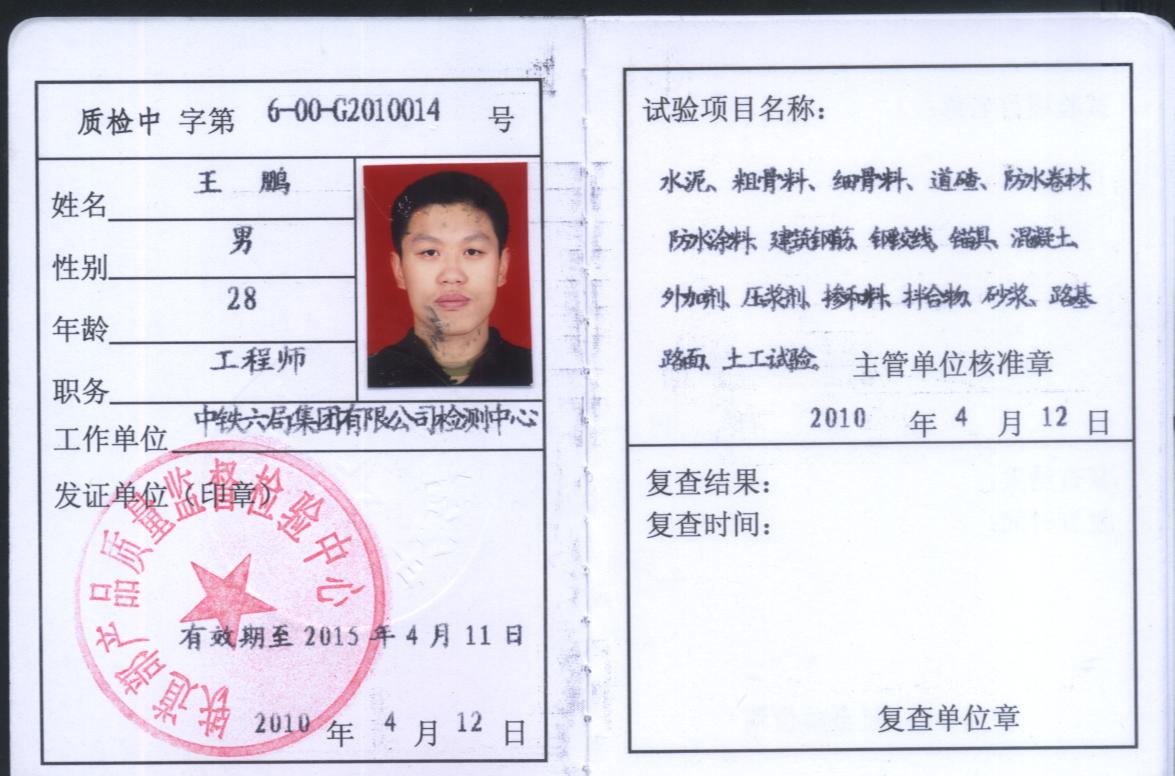 质检中 字第 6-00-G2010014 号
姓名 王 鹏
性别 男
年龄 28
职务 工程师
工作单位 中铁六局集团有限公司检测中心
发证单位（印章）
铁道部产品质量监督检验中心
有效期至 2015 年 4 月 11 日
2010 年 4 月 12 日
试验项目名称：
水泥、粗骨料、细骨料、道碴、防水卷材、
防水涂料、建筑钢筋、钢绞线、锚具、混凝土、
外加剂、压浆剂、掺和料、拌合物、砂浆、路基
路面、土工试验。 主管单位核准章
2010 年 4 月 12 日
复查结果：
复查时间：
复查单位章